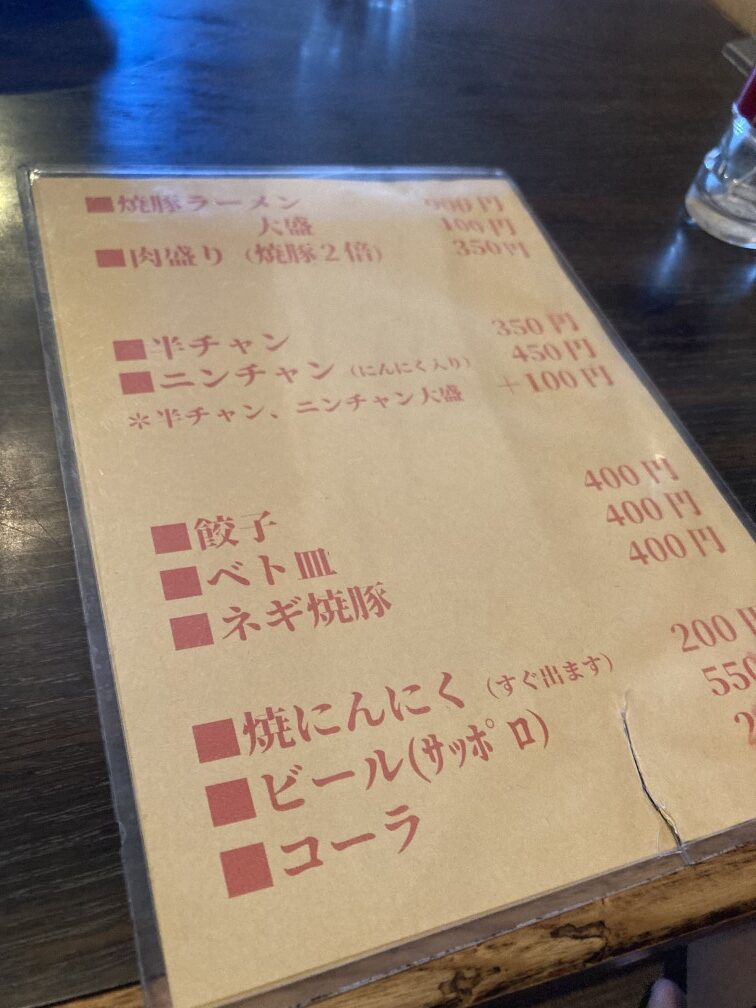 ■焼豚ラーメン 900円
大盛 100円
■肉盛り（焼豚２倍） 350円
■半チャン 350円
■ニンチャン（にんにく入り） 450円
＊半チャン、ニンチャン大盛 ＋100円
■餃子 400円
■ベト皿 400円
■ネギ焼豚 400円
■焼にんにく（すぐ出ます） 200円
■ビール(ｻｯﾎﾟﾛ) 550
■コーラ